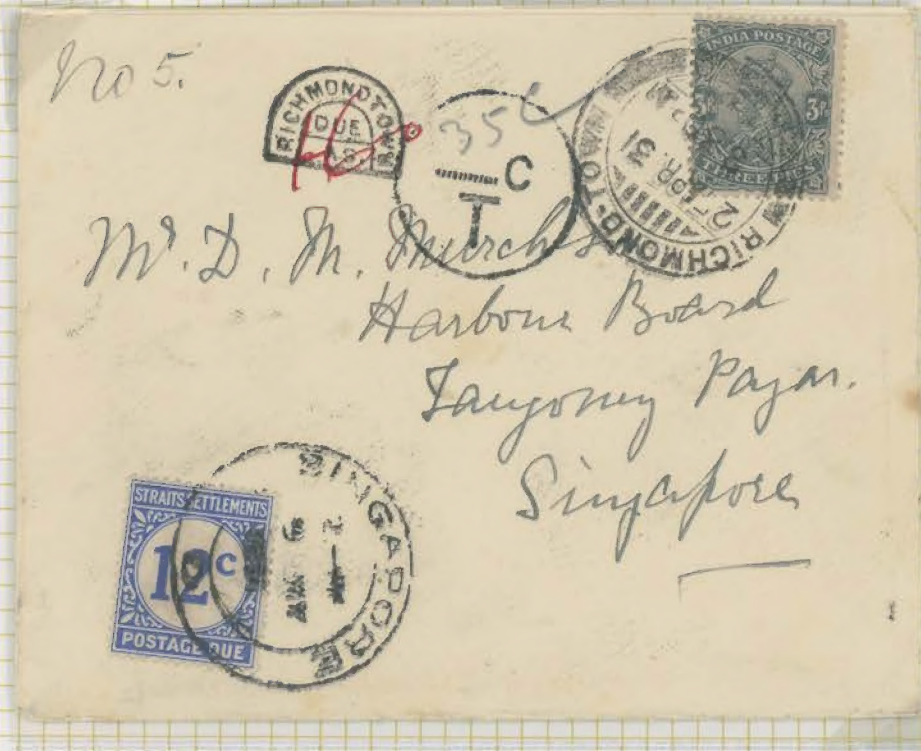 No 5.
RICHMONDTOWN
DUE
AS
35 c
C
T
RICHMOND-TOWN
2 APR. 31
INDIA POSTAGE
3P
THREE PIES
Mr. D. M.
Harbour Board
Tanjong Pagar.
Singapore
STRAITS SETTLEMENTS
12c
POSTAGE DUE
SINGAPORE